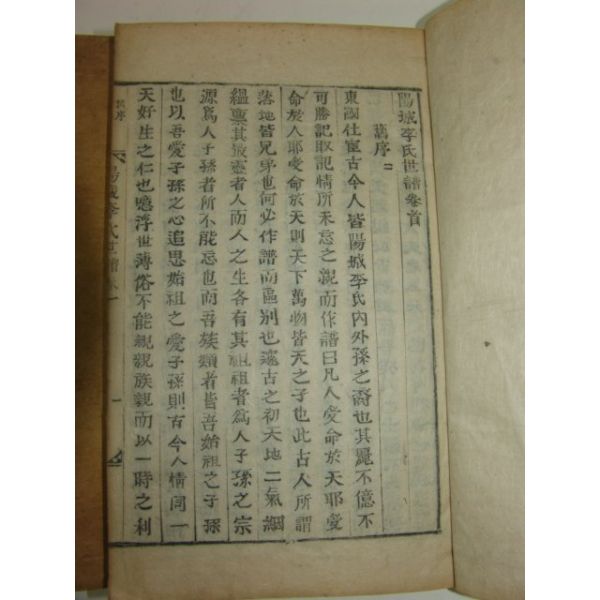 陽城李氏世譜卷首
舊序二
東國仕宦古今人皆陽城李氏內外孫之裔也其麗不億不
可勝記取記情所不忍忘之親而作譜曰凡人受命於天耶受
命於人耶受命於天則天下萬物皆天之子也此古人所謂
落地皆兄弟也何必作譜而區別也邃古之初天地二氣絪
縕稟其最靈者人而人之生各有其祖祖者爲人子孫之宗
源爲人子孫者所不能忘也而吾族類者皆吾始祖之子孫
也以吾愛子孫之心追思始祖之愛子孫則古今人情同一
天好生之仁也噫浮世薄俗不能親親族親而以一時之利
舊序
陽城李氏世譜
一